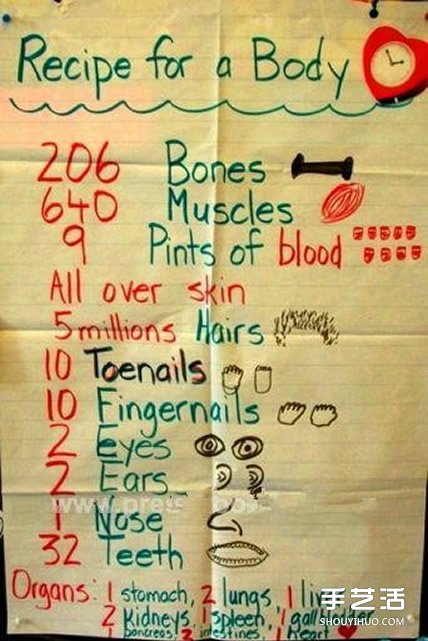 Recipe for a Body
206 Bones
640 Muscles
9 Pints of blood
All over skin
5 millions Hairs
10 Toenails
10 Fingernails
2 Eyes
2 Ears
1 Nose
32 Teeth
Organs: 1 stomach, 2 lungs, 1 liver
2 kidneys, 1 spleen, 1 gallbladder
1 pancreas, 2 intestines, 1 heart
手艺活
SHOUYIHUO.COM